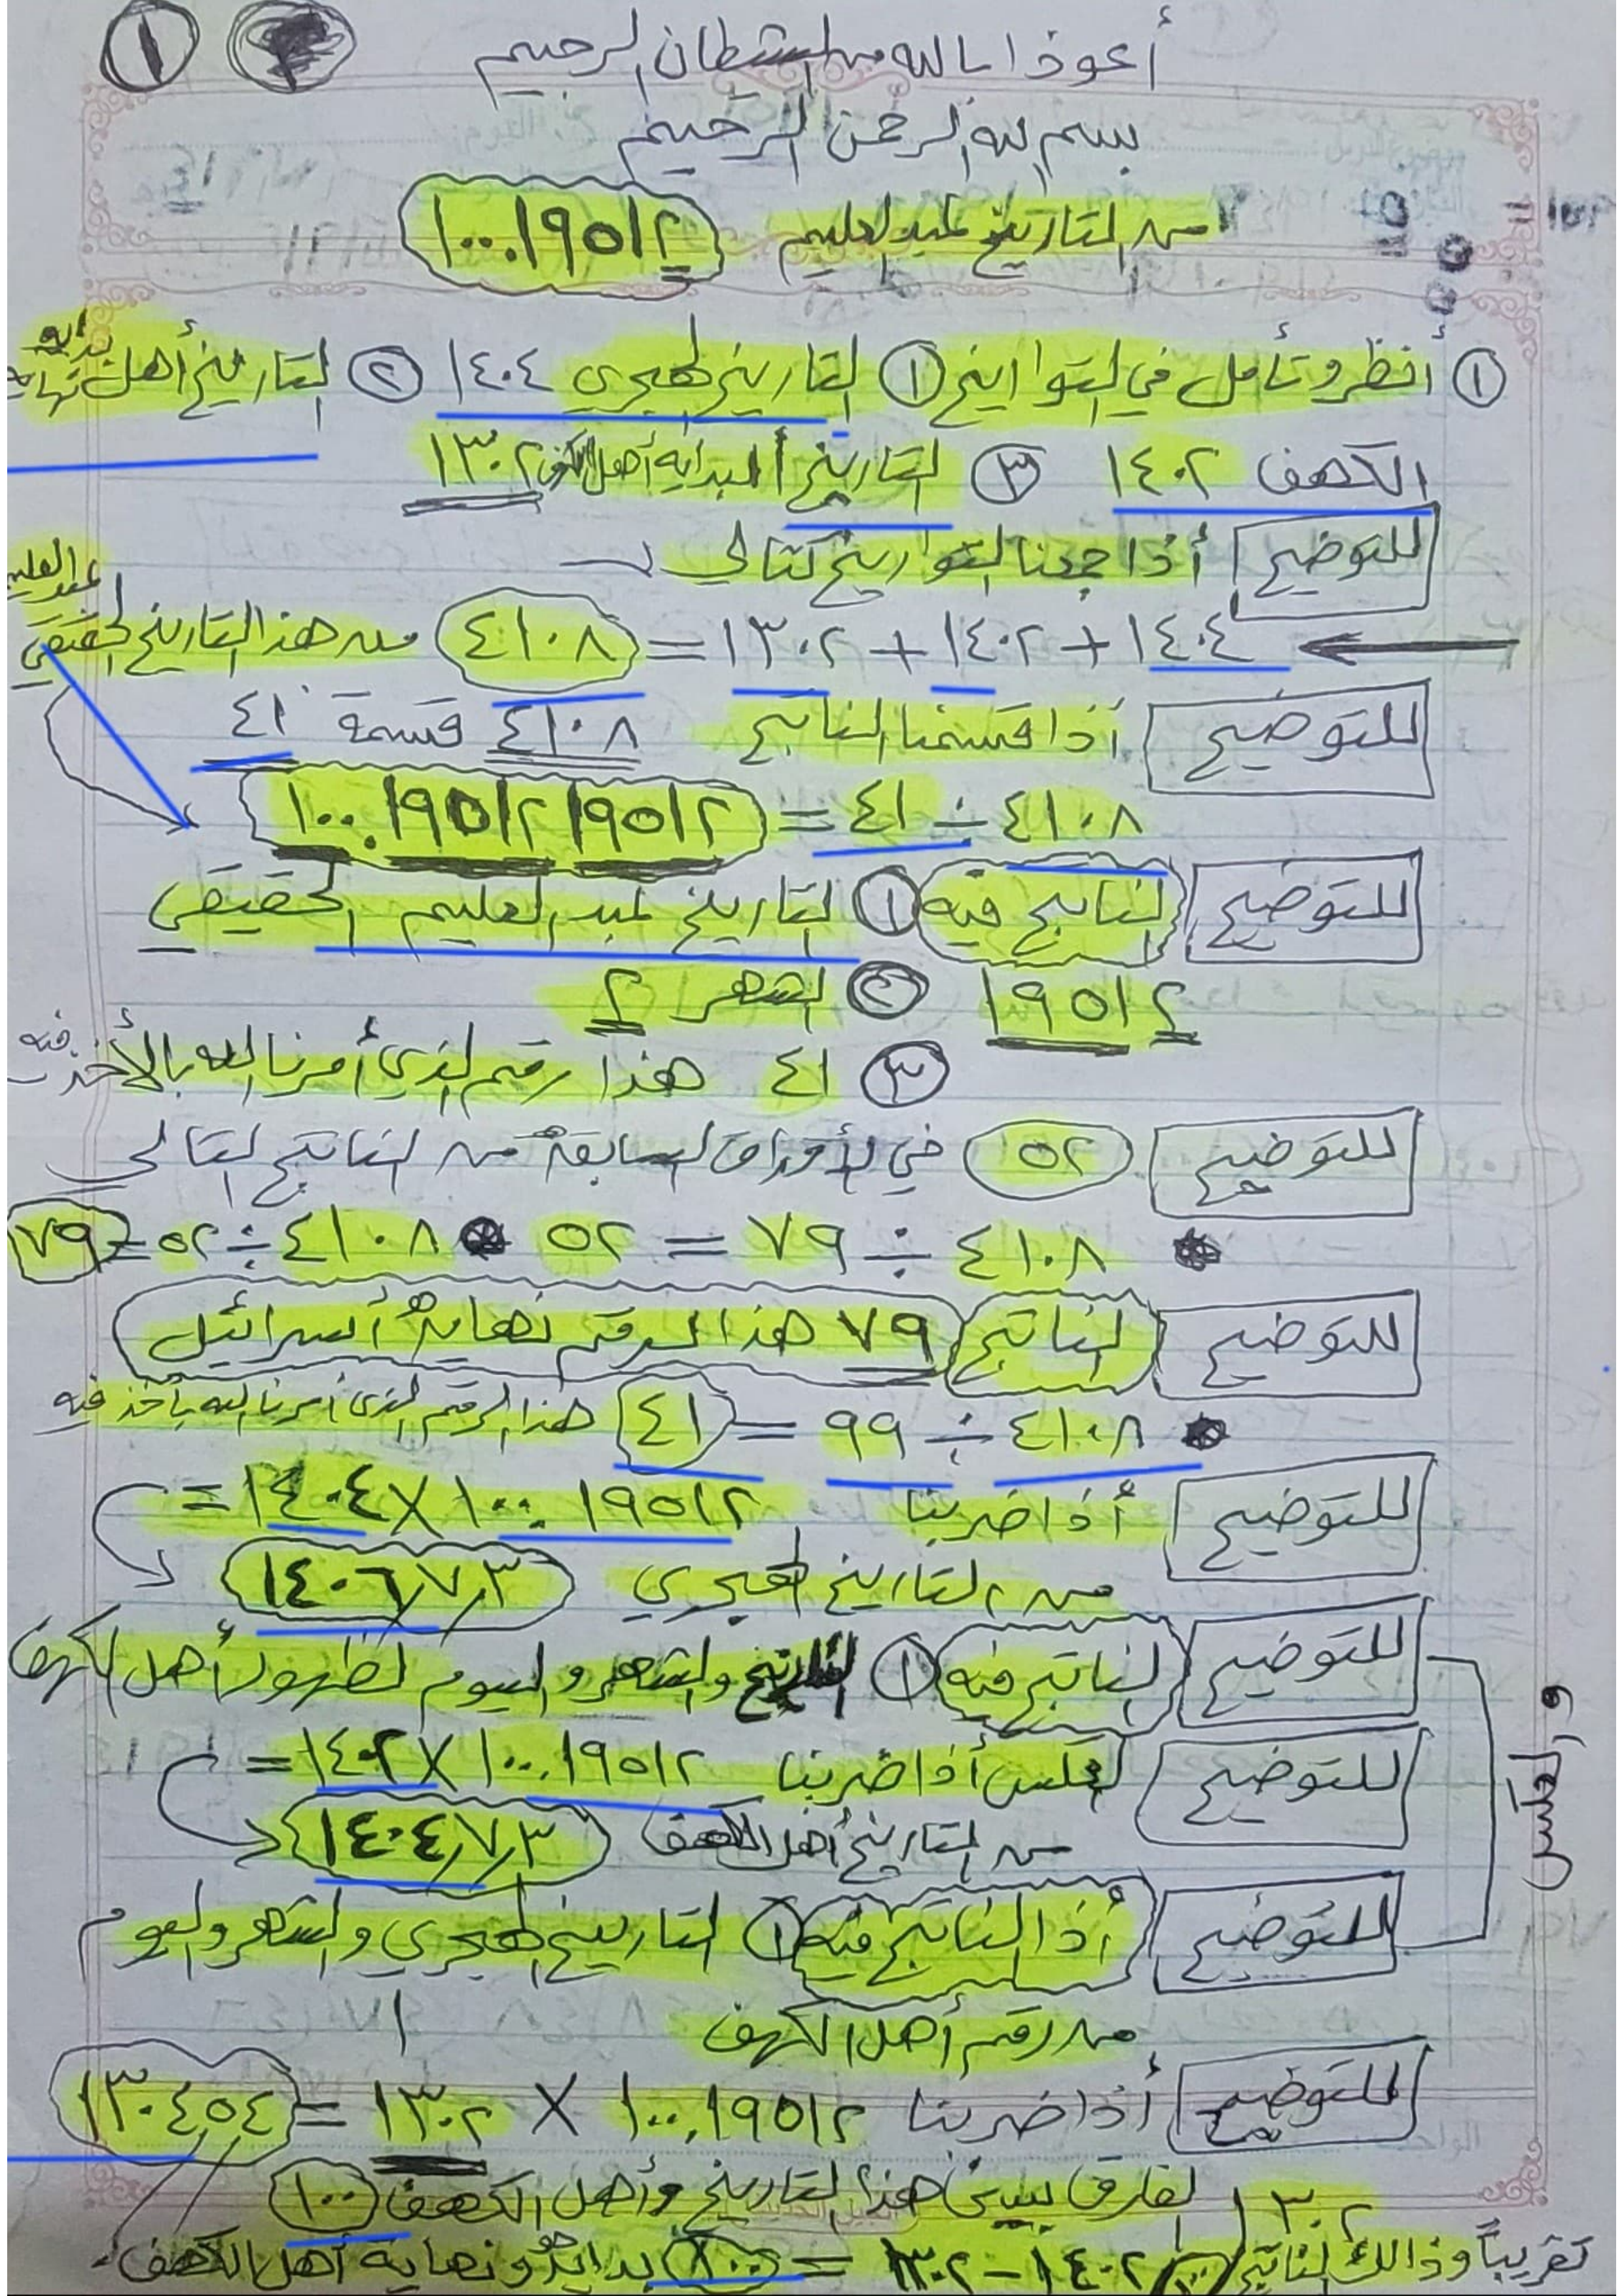 ١
أعوذ بالله من الشيطان الرجيم
بسم الله الرحمن الرحيم
من التاريخ عبد العليم ١٠٠.١٩٥١٢
١ أنظر وتأمل في التواريخ ١ التاريخ الهجري ١٤٠٤ ٢ التاريخ أهل نهاية
الكهف ١٤٠٢ ٣ التاريخ البداية أهل الكهف ١٣٠٢
للتوضيح أذا جمعنا التواريخ كتالي
١٤٠٤ + ١٤٠٢ + ١٣٠٢ = ٤١٠٨ من هذا التاريخ الحقيقي
عبد العليم
للتوضيح أذا قسمنا الناتج ٤١٠٨ قسمة ٤١
٤١٠٨ ÷ ٤١ = ١٠٠.١٩٥١٢١٩٥١٢
للتوضيح الناتج فيه ١ التاريخ عبد العليم الحقيقي
١٩٥١٢ ٢ الشهر ٢
٣ ٤١ هذا رقم الذي أمرنا الله بالأخذ فيه
للتوضيح ٥٢ في الأوراق السابقة من الناتج التالي
٤١٠٨ ÷ ٧٩ = ٥٢ ٤١٠٨ ÷ ٥٢ = ٧٩
للتوضيح الناتج ٧٩ هذا الرقم نهاية أسرائيل
٤١٠٨ ÷ ٩٩ = ٤١ هذا الرقم الذي أمرنا الله بأخذ فيه
للتوضيح أذا ضربنا ١٠٠.١٩٥١٢ × ١٤٠٤ =
من التاريخ الهجري ١٤٠٦٧٣
للتوضيح الناتج فيه ١ التاريخ والشهر واليوم لظهور أهل الكهف
للتوضيح لعكس أذا ضربنا ١٠٠.١٩٥١٢ × ١٤٠٢ =
والعكس
من التاريخ أهل الكهف ١٤٠٤٧٣
للتوضيح أذا الناتج فيه ١ التاريخ الهجري والشهر واليوم
من رقم أهل الكهف
للتوضيح أذا ضربنا ١٠٠.١٩٥١٢ × ١٣٠٢ = ١٣٠٤٥٤
١٣٠٢ الفارق بين هذا التاريخ وأهل الكهف ١٠٠
تقريباً وذالك الناتج ١٤٠٢ - ١٣٠٢ = ١٠٠ بداية ونهاية أهل الكهف